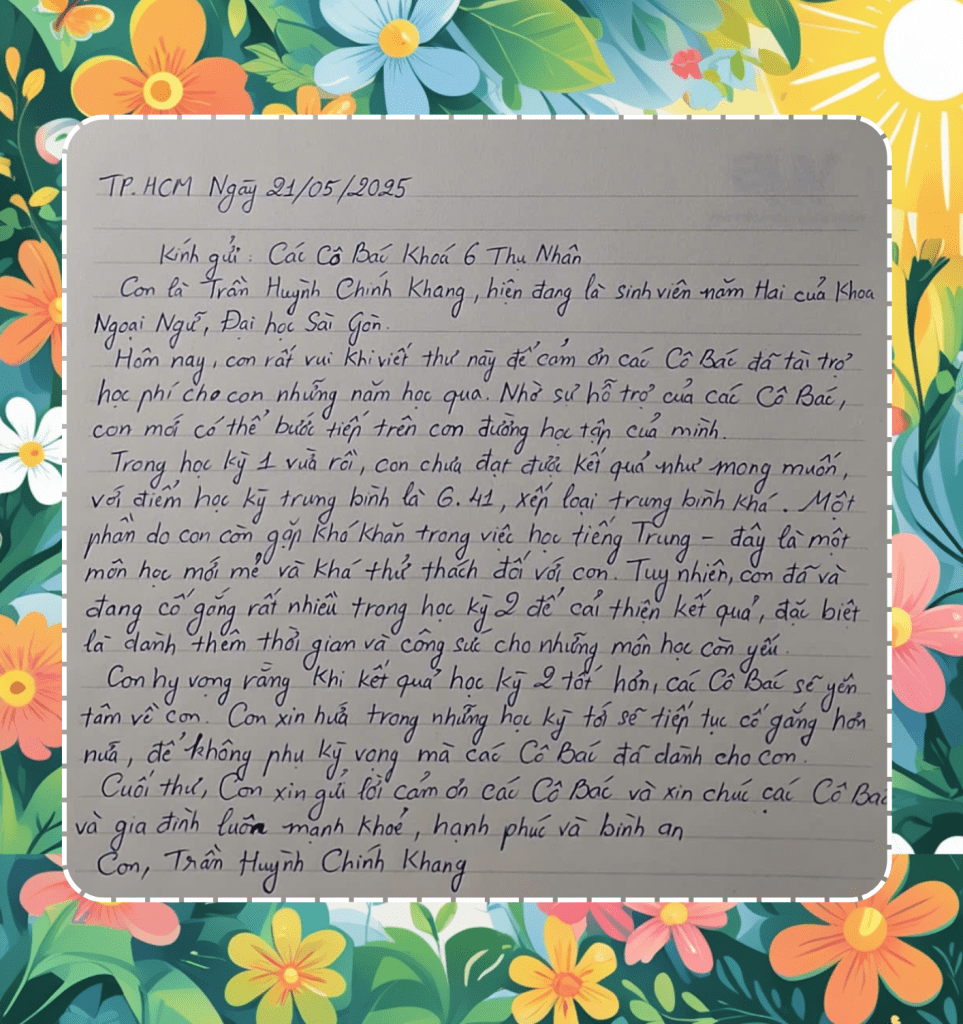 TP. HCM Ngày 21/05/2025
Kính gửi: Các Cô Bác Khoá 6 Thụ Nhân
Con là Trần Huỳnh Chính Khang, hiện đang là sinh viên năm Hai của Khoa
Ngoại Ngữ, Đại học Sài Gòn.
Hôm nay, con rất vui khi viết thư này để cảm ơn các Cô Bác đã tài trợ
học phí cho con những năm học qua. Nhờ sự hỗ trợ của các Cô Bác,
con mới có thể bước tiếp trên con đường học tập của mình.
Trong học kỳ 1 vừa rồi, con chưa đạt được kết quả như mong muốn,
với điểm học kỳ trung bình là 6.41, xếp loại trung bình khá. Một
phần do con còn gặp khó khăn trong việc học tiếng Trung - đây là một
môn học mới mẻ và khá thử thách đối với con. Tuy nhiên, con đã và
đang cố gắng rất nhiều trong học kỳ 2 để cải thiện kết quả, đặc biệt
là dành thêm thời gian và công sức cho những môn học còn yếu.
Con hy vọng rằng khi kết quả học kỳ 2 tốt hơn, các Cô Bác sẽ yên
tâm về con. Con xin hứa trong những học kỳ tới sẽ tiếp tục cố gắng hơn
nữa, để không phụ kỳ vọng mà các Cô Bác đã dành cho con.
Cuối thư, Con xin gửi lời cảm ơn các Cô Bác và xin chúc các Cô Bác
và gia đình luôn mạnh khoẻ, hạnh phúc và bình an
Con, Trần Huỳnh Chính Khang